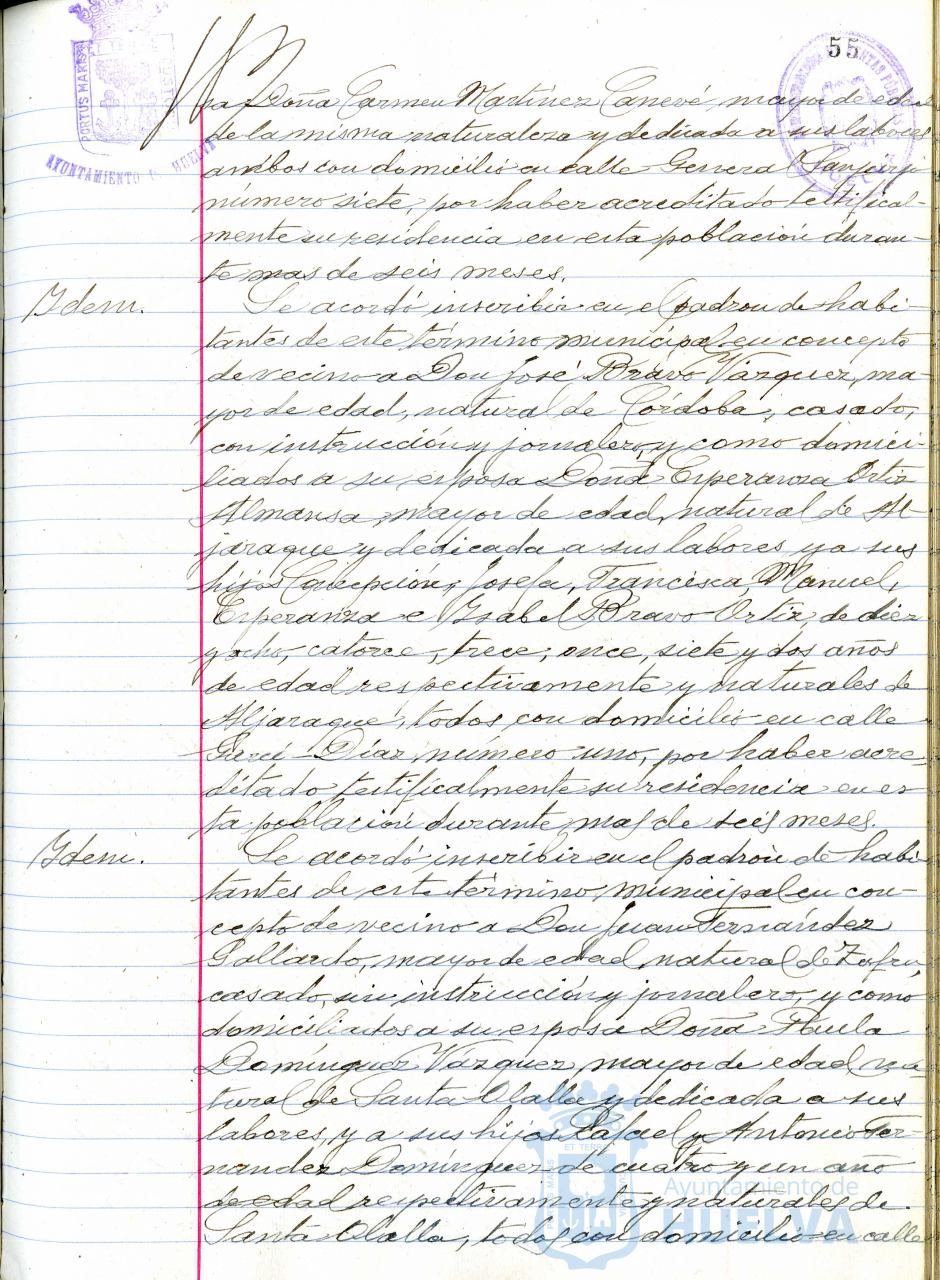 55
PORTUS MARIS
ET TERRÆ
CUSTO
AYUNTAMIENTO DE HUELVA
sa Doña Carmen Martínez Canevé, mayor de edad
de la misma naturaleza y dedicada a sus labores
ambos con domicilio en calle General
número siete, por haber acreditado testifical-
mente su residencia en esta población duran-
te mas de seis meses.
Idem.
Se acordó inscribir en el padrón de habi-
tantes de este término municipal en concepto
de vecino a Don José Bravo Vázquez, ma-
yor de edad, natural de Córdoba, casado,
con instrucción y jornalero, y como domici-
liados a su esposa Doña Esperanza Ortiz
Almansa, mayor de edad, natural de Al-
jaraque y dedicada a sus labores, y a sus
hijos Concepción, Josefa, Francisca, Manuel,
Esperanza e Isabel Bravo Ortiz, de diez
y ocho, catorce, trece, once, siete y dos años
de edad respectivamente y naturales de
Aljaraque, todos con domicilio en calle
Garci-Díaz, número uno, por haber acre-
ditado testificalmente su residencia en es-
ta población durante mas de seis meses.
Idem.
Se acordó inscribir en el padrón de habi-
tantes de este término municipal en con-
cepto de vecino a Don Juan Fernández
Gallardo, mayor de edad, natural de Zafra,
casado, sin instrucción y jornalero, y como
domiciliados a su esposa Doña Paula
Domínguez Vázquez, mayor de edad, na-
tural de Santa Olalla y dedicada a sus
labores, y a sus hijos Rafael y Antonio Fer-
nández Domínguez de cuatro y un año
de edad respectivamente y naturales de
Santa Olalla, todos con domicilio en calle
Ayuntamiento de
HUELVA